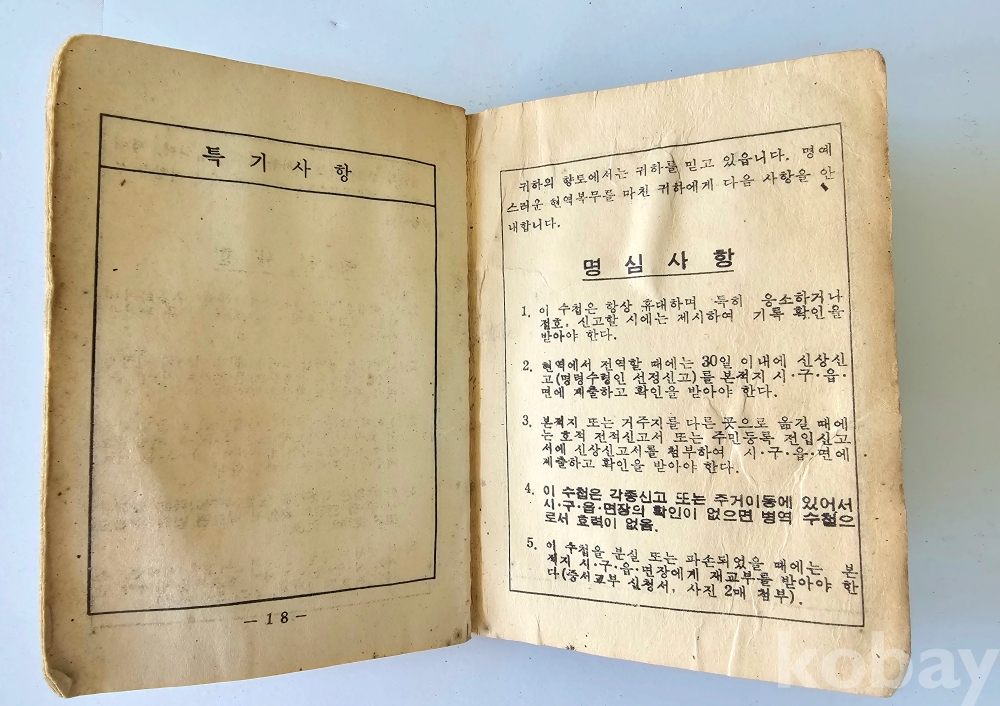 특기사항
-18-
귀하의 향토에서는 귀하를 믿고 있읍니다. 명예
스러운 현역복무를 마친 귀하에게 다음 사항을 안
내합니다.
명심사항
1. 이 수첩은 항상 휴대하며 특히 응소하거나
점호, 신고할 시에는 제시하여 기록 확인을
받아야 한다.
2. 현역에서 전역할 때에는 30일 이내에 신상신
고(명령수령인 선정신고)를 본적지 시·구·읍·
면에 제출하고 확인을 받아야 한다.
3. 본적지 또는 거주지를 다른 곳으로 옮길 때에
는 호적 전적신고서 또는 주민등록 전입신고
서에 신상신고서를 첨부하여 시·구·읍·면에
제출하고 확인을 받아야 한다.
4. 이 수첩은 각종신고 또는 주거이동에 있어서
시·구·읍·면장의 확인이 없으면 병역 수첩으
로서 효력이 없음.
5. 이 수첩을 분실 또는 파손되었을 때에는 본
적지 시·구·읍·면장에게 재교부를 받아야 한
다(증서교부 신청서, 사진 2매 첨부).
kobay